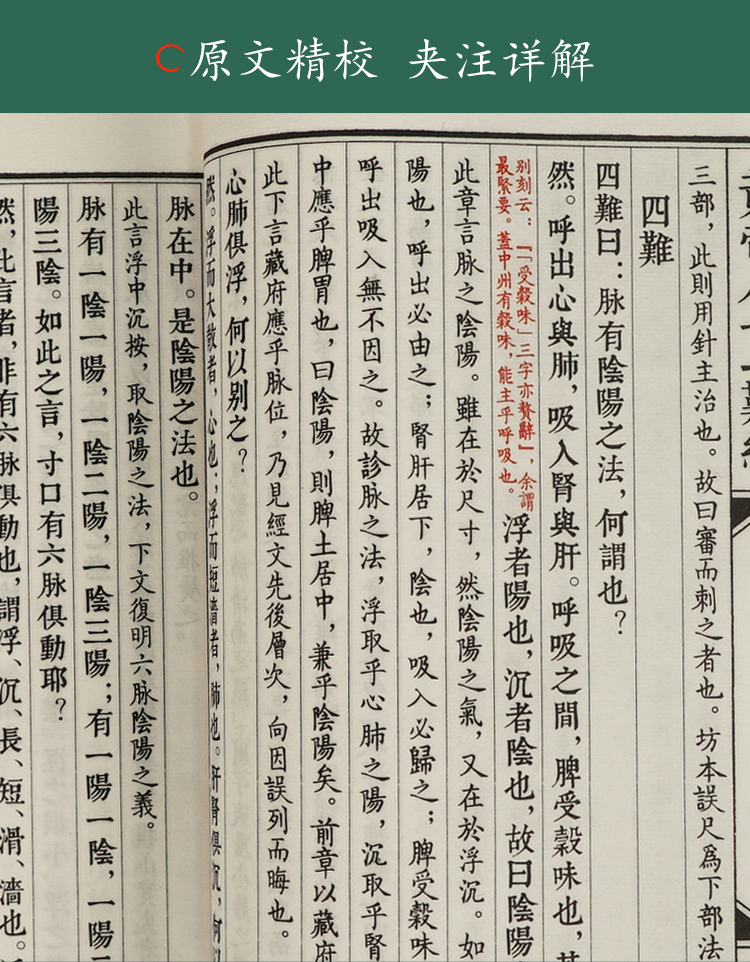 原文精校 夹注详解
三部，此則用針主治也。故曰審而刺之者也。坊本誤尺爲下部法
四難
四難曰：脉有陰陽之法，何謂也？
然。呼出心與肺，吸入腎與肝。呼吸之間，脾受穀味也，其
別刻云：『「受穀味」三字亦贅辭』，余謂
最緊要。蓋中州有穀味，能主乎呼吸也。
浮者陽也，沉者陰也，故曰陰陽
此章言脉之陰陽。雖在於尺寸，然陰陽之氣，又在於浮沉。如
陽也，呼出必由之；腎肝居下，陰也，吸入必歸之；脾受穀味
呼出吸入無不因之。故診脉之法，浮取乎心肺之陽，沉取乎腎
中應乎脾胃也，曰陰陽，則脾土居中，兼乎陰陽矣。前章以藏府
此下言藏府應乎脉位，乃見經文先後層次，向因誤列而晦也。
心肺俱浮，何以别之？
然。浮而大散者，心也；浮而短濇者，肺也。肝腎俱沉，何以
脉在中。是陰陽之法也。
此言浮中沉按，取陰陽之法，下文復明六脉陰陽之義。
脉有一陰一陽，一陰二陽，一陰三陽；有一陽一陰，一陽二
陽三陰。如此之言，寸口有六脉俱動耶？
然，此言者，非有六脉俱動也，謂浮、沉、長、短、滑、濇也。